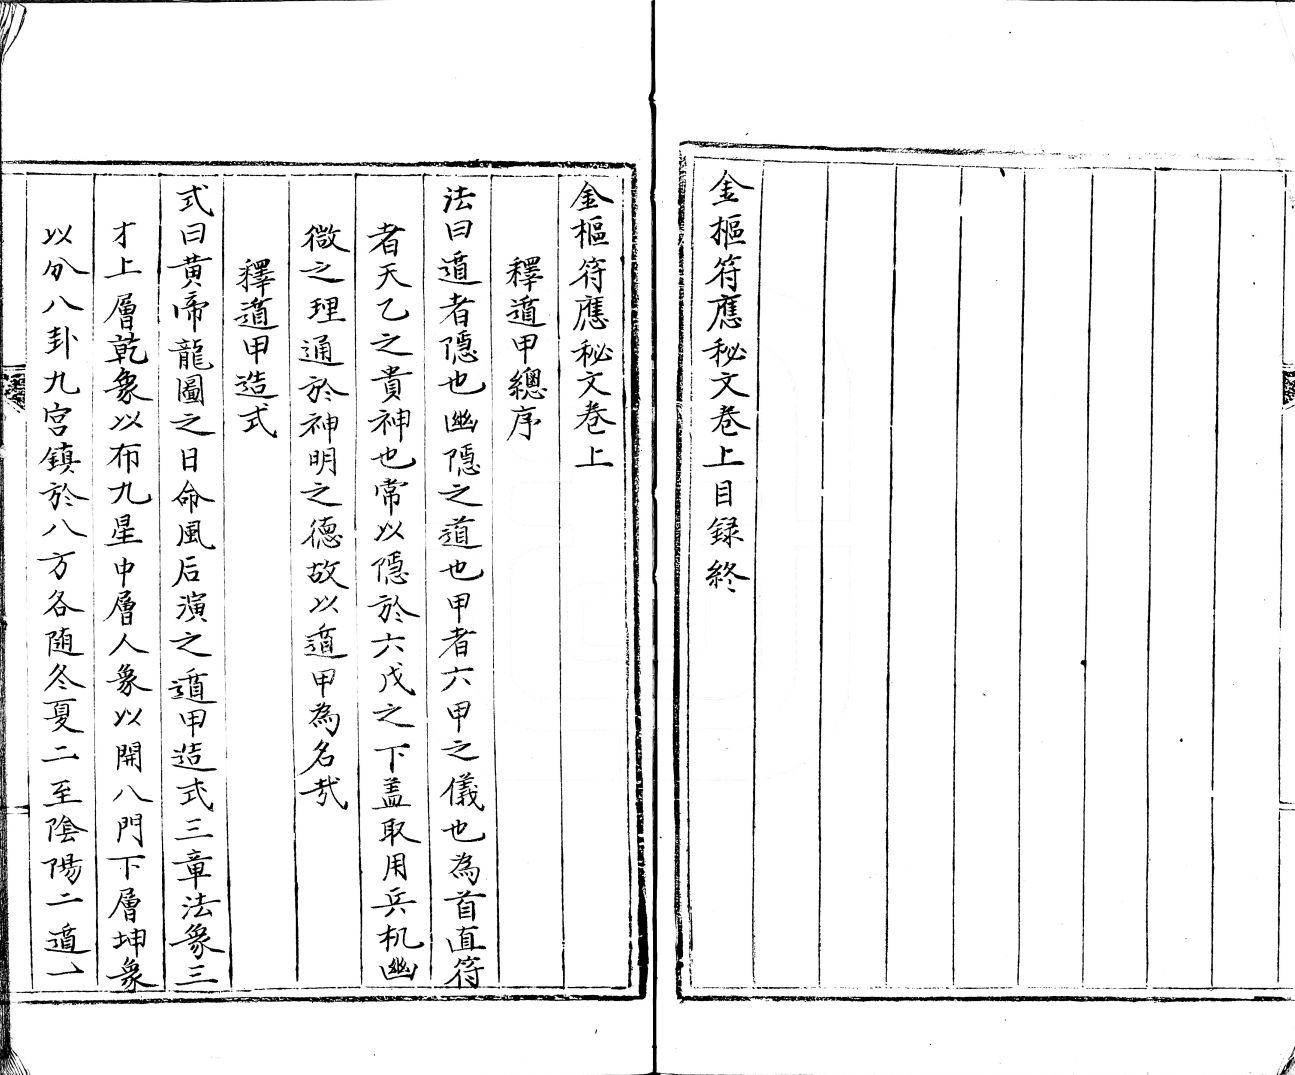 金樞符應秘文卷上目録終
金樞符應秘文卷上
釋遁甲總序
法曰遁者隱也幽隱之道也甲者六甲之儀也為首直符
者天乙之貴神也常以隱於六戊之下盖取用兵机幽
微之理通於神明之德故以遁甲為名哉
釋遁甲造式
式曰黄帝龍圖之日命風后演之遁甲造式三章法象三
才上層乾象以布九星中層人象以開八門下層坤象
以分八卦九宫鎮於八方各随冬夏二至陰陽二遁一